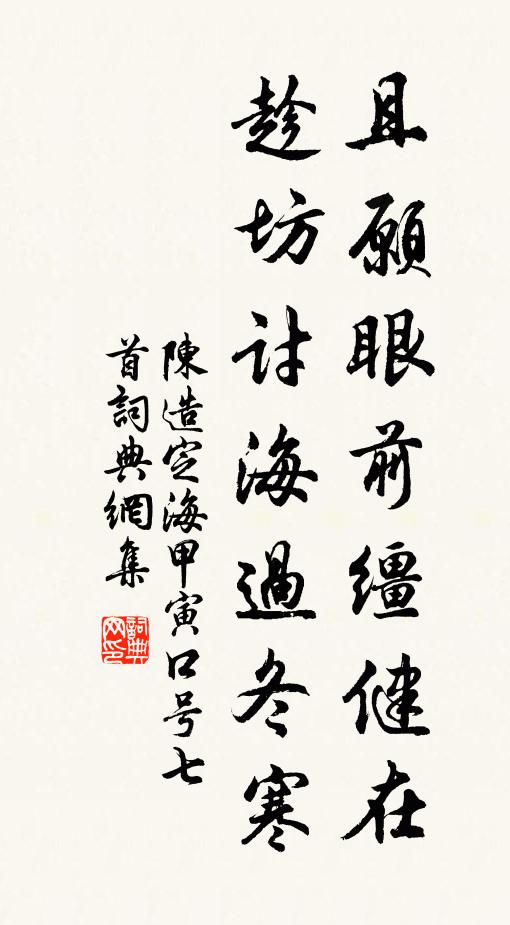 且願眼前缰健在
趁坊討海過冬寒
陳造定海甲寅口号七
首詞典網集
詞典网印